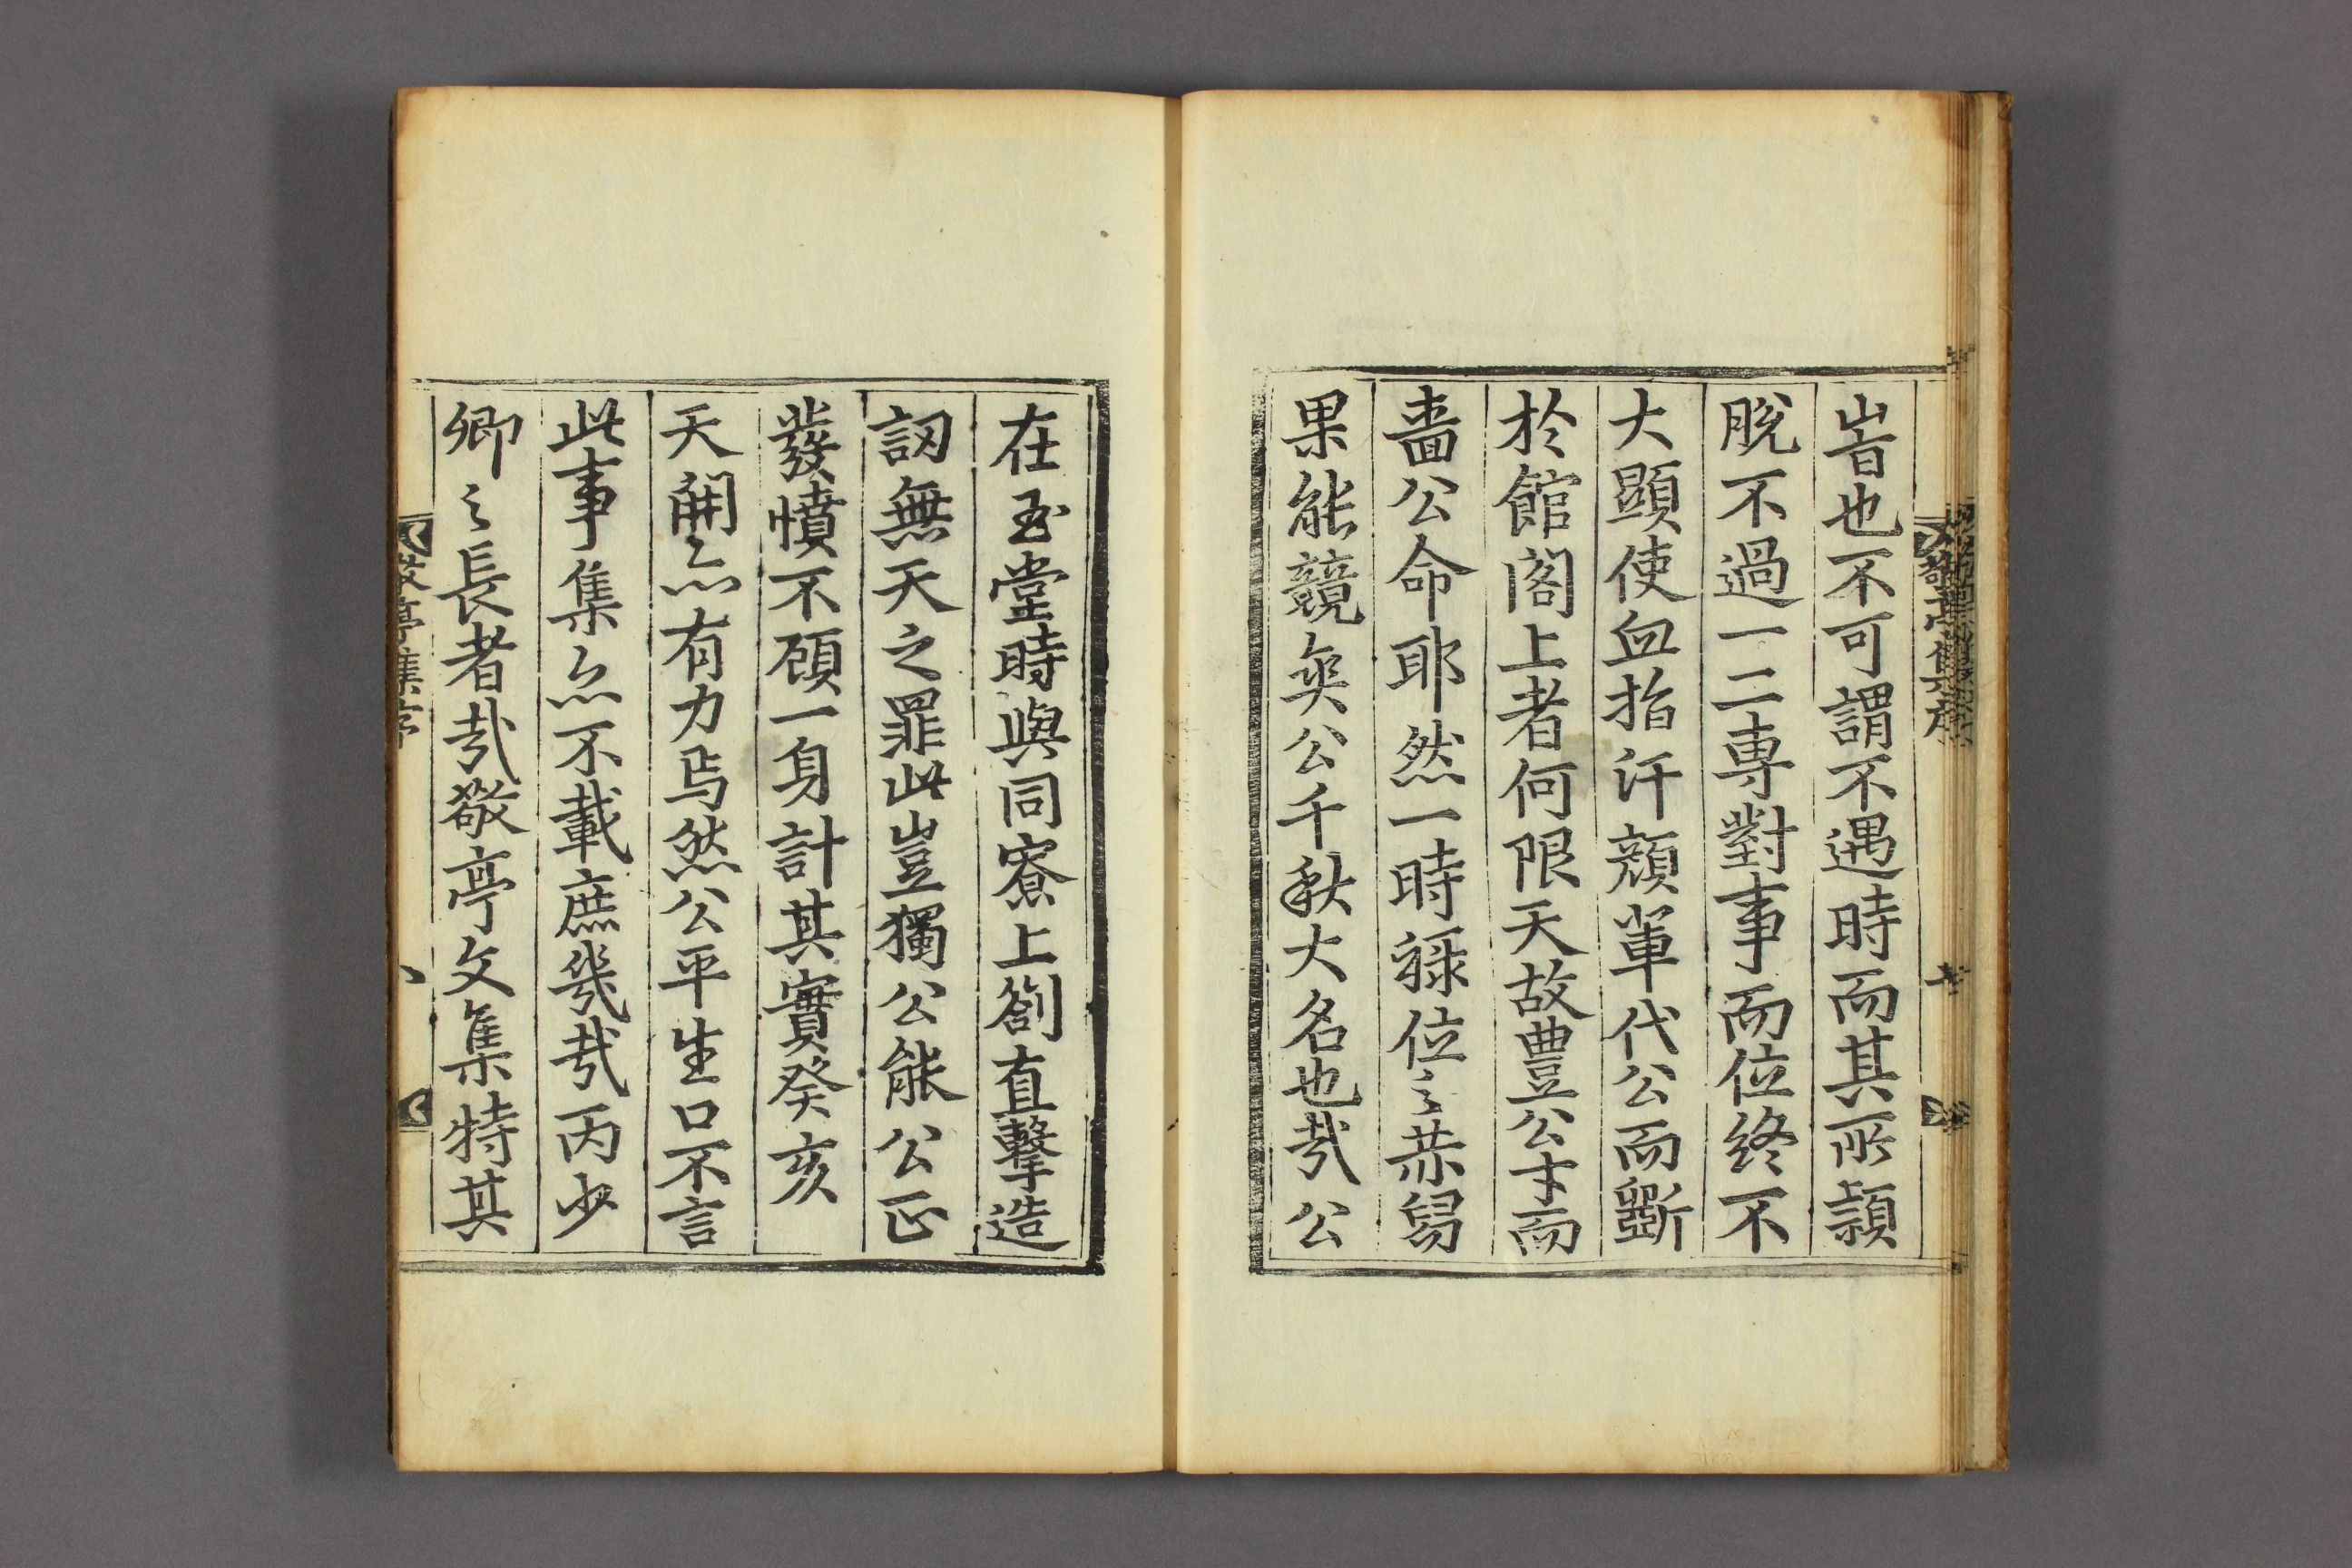 時也不可謂不遇時而其所穎
脫不過一二專對事而位終不
大顯使血指汗顏軰代公而斵
於館閣上者何限天故豊公才而
嗇公命耶然一時祿位之赫舃
果能競奐公千秋大名也㢤公
在玉堂時與同寮上劄直擊造
訒無天之罪此豈獨公能公正
發憤不顧一身計其實癸亥
天開亦有力焉然公平生口不言
此事集亦不載庶幾㢤丙少
卿之長者㢤敬亭文集特其
敬亭集序
敬亭集序